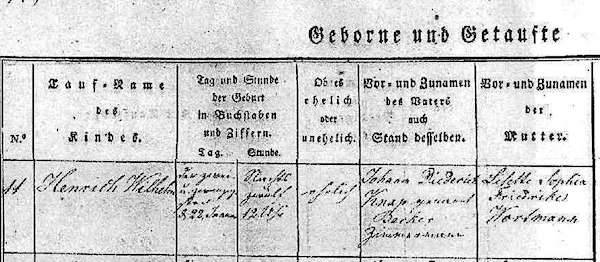 Geborne und Getaufte
N.º
Tauf=Name
des
Kindes.
Tag und Stunde
der Geburt
in Buchstaben
und Ziffern.
Tag. Stunde.
Ob es
ehrlich
oder
unehelich.
Vor= und Zunamen
des Vaters
auch
Stand desselben.
Vor= und Zunamen
der
Mutter.
11
Henrich Wilhelm
der zwei
u. zwanzig
d. 22. Januar
Nachts
zwölf
12 Uhr
ehelich
Johann Diederich
Knap genannt
Becker
Zimmermann
Lisette Sophia
Friedrikes
Wortmann